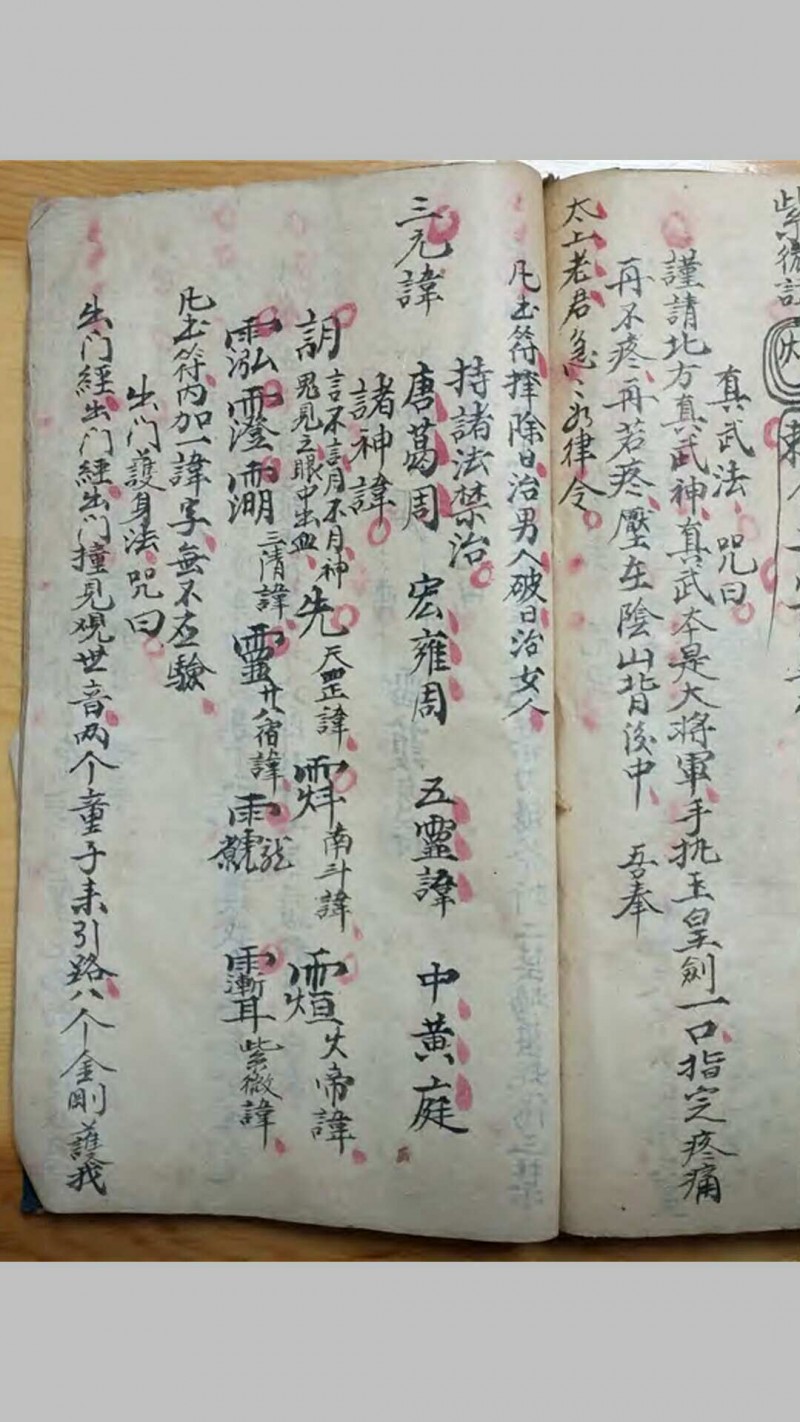 紫微諱
真武法 咒曰
謹請北方真武神真武本是大將軍手执玉皇劍一口指定疼痛
再不疼再若疼壓在陰山背後中 吾奉
太上老君急〻如律令
凡書符擇除日治男人破日治女人
持諸法禁治
三元諱 唐葛周 宏雍周 五靈諱 中黃庭
諸神諱
言不言月不月神
鬼見之眼中出血
先 天罡諱 南斗諱 火帝諱
三清諱 廿八宿諱 紫微諱
凡書符內加一諱字無不应驗
出门護身法咒曰
出门經出门經出门撞見观世音两个童子来引路八个金剛護我